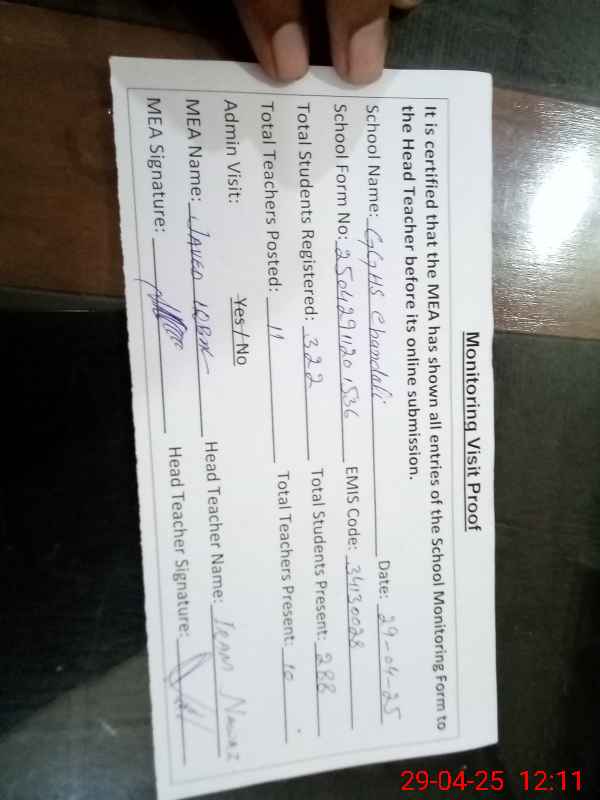 Monitoring Visit Proof
It is certified that the MEA has shown all entries of the School Monitoring Form to
the Head Teacher before its online submission.
School Name: GGHS Chandali Date: 29-04-25
School Form No: 2504291120 1536 EMIS Code: 34130028
Total Students Registered: 322 Total Students Present: 288
Total Teachers Posted: 11 Total Teachers Present: 10
Admin Visit: Yes / No
MEA Name: JAVED IQBAL Head Teacher Name: IRAM NAWAZ
MEA Signature: Head Teacher Signature:
29-04-25 12:11